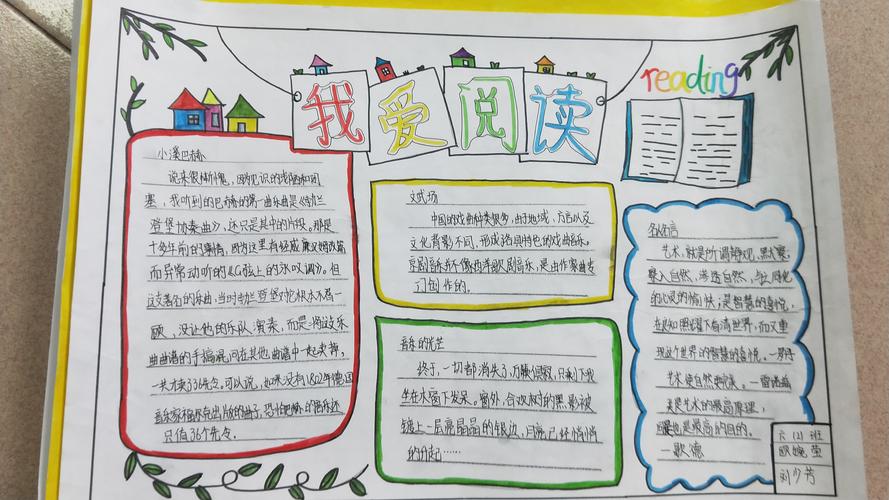 我爱阅读
reading
小溪巴赫
说来很惭愧，因为见识的浅陋和闭
塞，我听到的巴赫的第一曲乐曲是《勃兰
登堡协奏曲》，还只是其中的片段。那是
十多年前的事情，因为这里有经威廉汉姆改编
而异常动听的《G弦上的咏叹调》。但
这支著名的乐曲，当时勃兰登堡对它根本不屑一
顾，没让他的乐队演奏，而是将这乐
曲曲谱的手稿混同在其他曲谱中一起卖掉，
一共才卖36先令。可以说，如果没有1802年德国
音乐家福尔
出版的
巴赫的音乐还
只值36个先令。
文武场
中国的戏曲种类很多，由于地域、方言以及
文化背影不同，形成各具特色的戏曲音乐。
京剧音乐不像西洋歌剧音乐，是由作家曲专
门创作的。
音乐的光芒
终于，一切都消失了，万籁俱寂，只剩下我
坐在木窗下发呆。窗外，合欢树的黑影被
镀上一层亮晶晶的银边，月亮已经悄悄
的升起……
名人名言
艺术，就是所谓静观、默察，
深入自然，渗透自然，与之同化
的心灵的愉快；是智慧的喜悦，
在良知照耀下看清世界，而又重
现这个世界的智慧的喜悦。—罗丹
艺术使自然更完美。—雷诺兹
美是艺术的最高原理，
同时也是最高的目的。
—歌德
六（2）班
欧婉莹
刘少芳